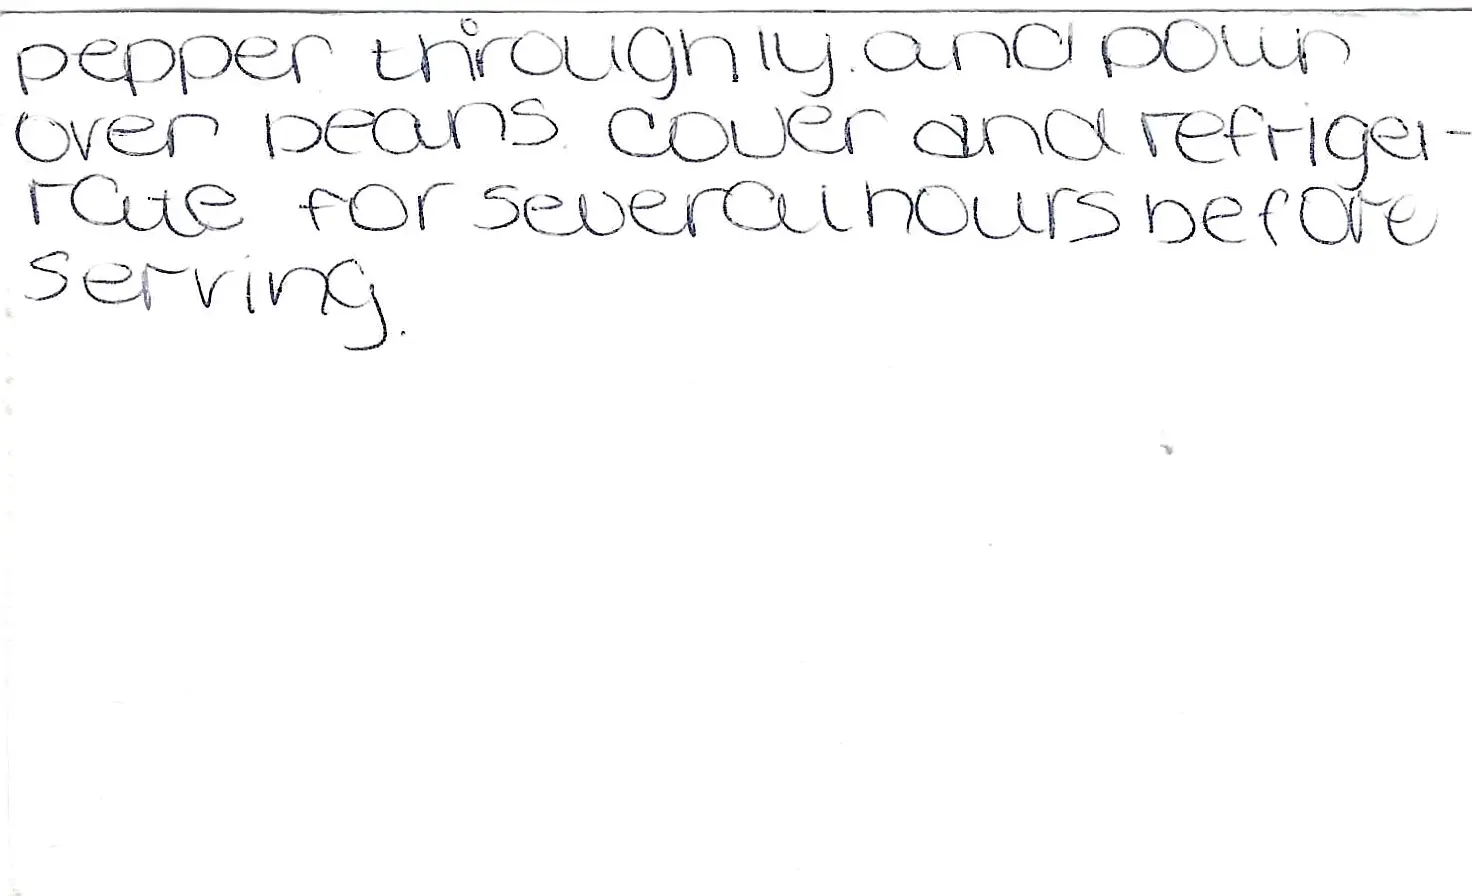 pepper thoroughly. and pour
over beans. cover and refriger-
rate for several hours before
serving.